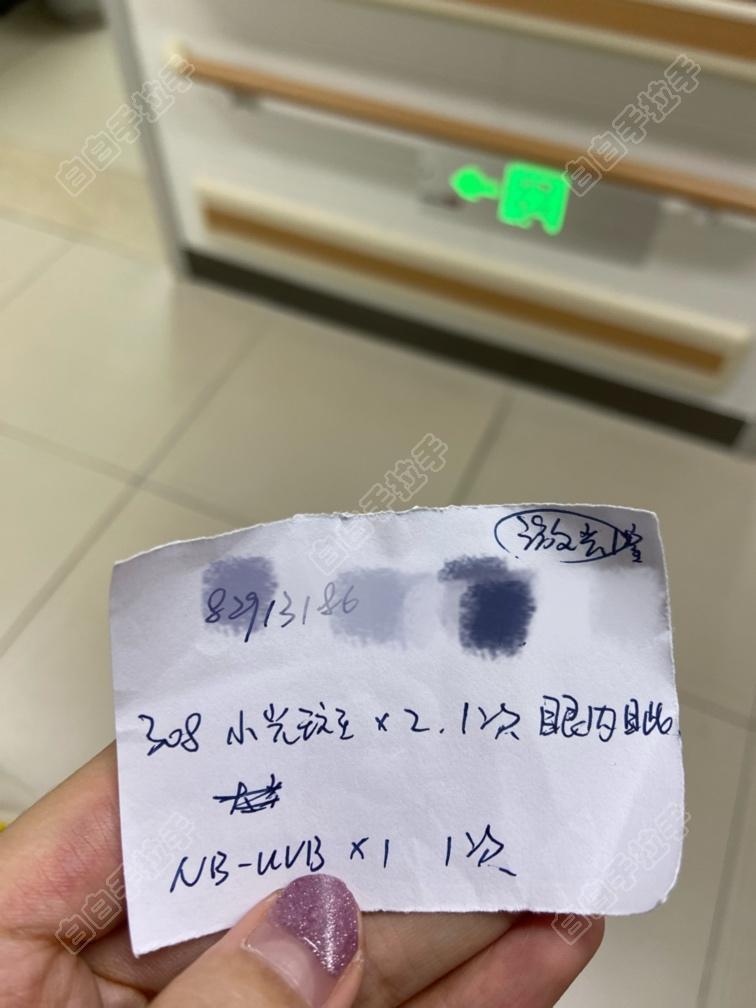 激光室
82913186
308 小光斑 × 2. 1次 眼内眦
NB-UVB × 1 1次
白白手拉手
白白手拉手
白白手拉手
白白手拉手
白白手拉手